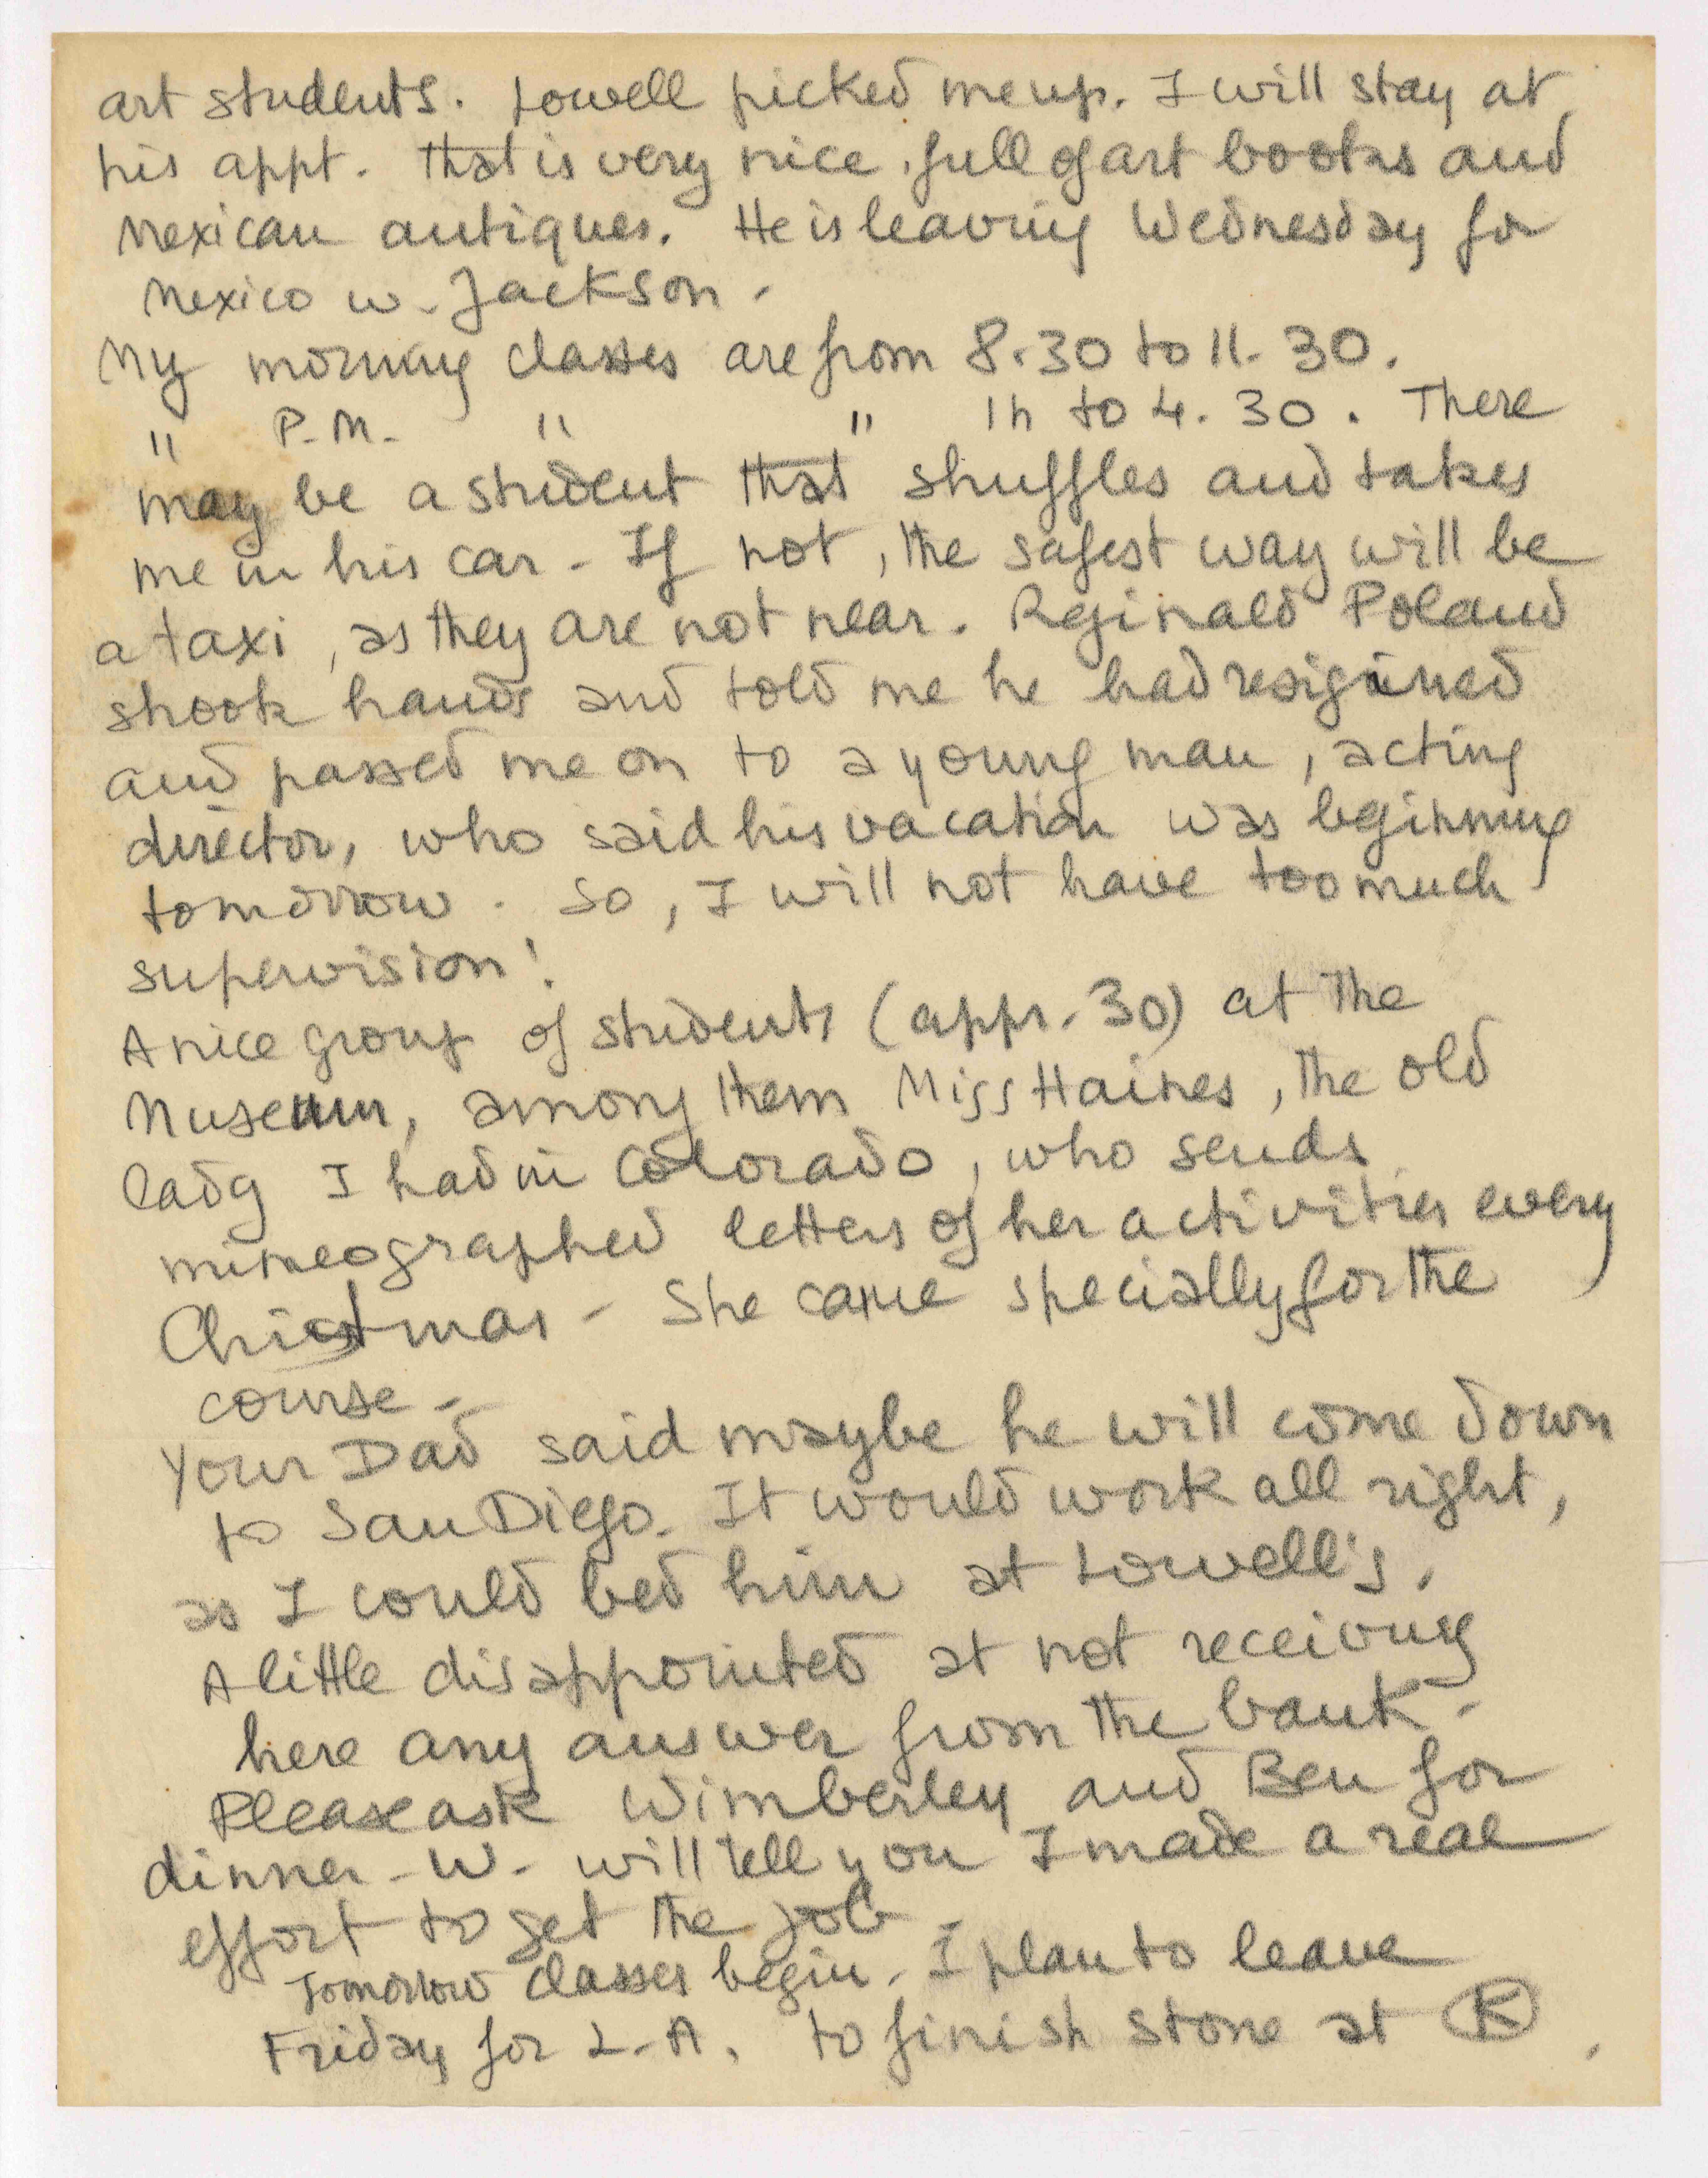 art students. Lowell picked me up. I will stay at
his appt. that is very nice, full of art books and
Mexican antiques. He is leaving Wednesday for
Mexico w. Jackson.
My morning classes are from 8.30 to 11.30.
" P.M. " " 1h to 4.30. There
may be a student that shuffles and takes
me in his car - If not, the safest way will be
a taxi, as they are not near. Reginald Poland
shook hands and told me he had resigned
and passed me on to a young man, acting
director, who said his vacation was beginning
tomorrow. So, I will not have too much
supervision!
A nice group of students (appr. 30) at the
Museum, among them Miss Haines, the old
lady I had in Colorado, who sends
mimeographed letters of her activities every
Christmas - She came specially for the
course -
Your Dad said maybe he will come down
to San Diego. It would work all right,
as I could bed him at Lowell's.
A little disappointed at not receiving
here any answer from the bank -
Please ask Wimberley and Ben for
dinner - W. will tell you I made a real
effort to get the job
Tomorrow classes begin. I plan to leave
Friday for L.A. to finish stone at K.